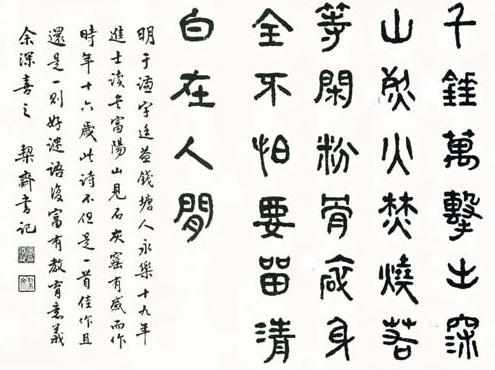 千錘萬擊出深
山烈火焚燒若
等閑粉骨碎身
全不怕要留清
白在人間
明于謙字廷益錢塘人永樂十九年
進士讀書富陽山見石灰窰有感而作
時年十六歲此詩不但是一首佳作且
還是一則好謎語復富有教育意義
余深喜之 契齋書記